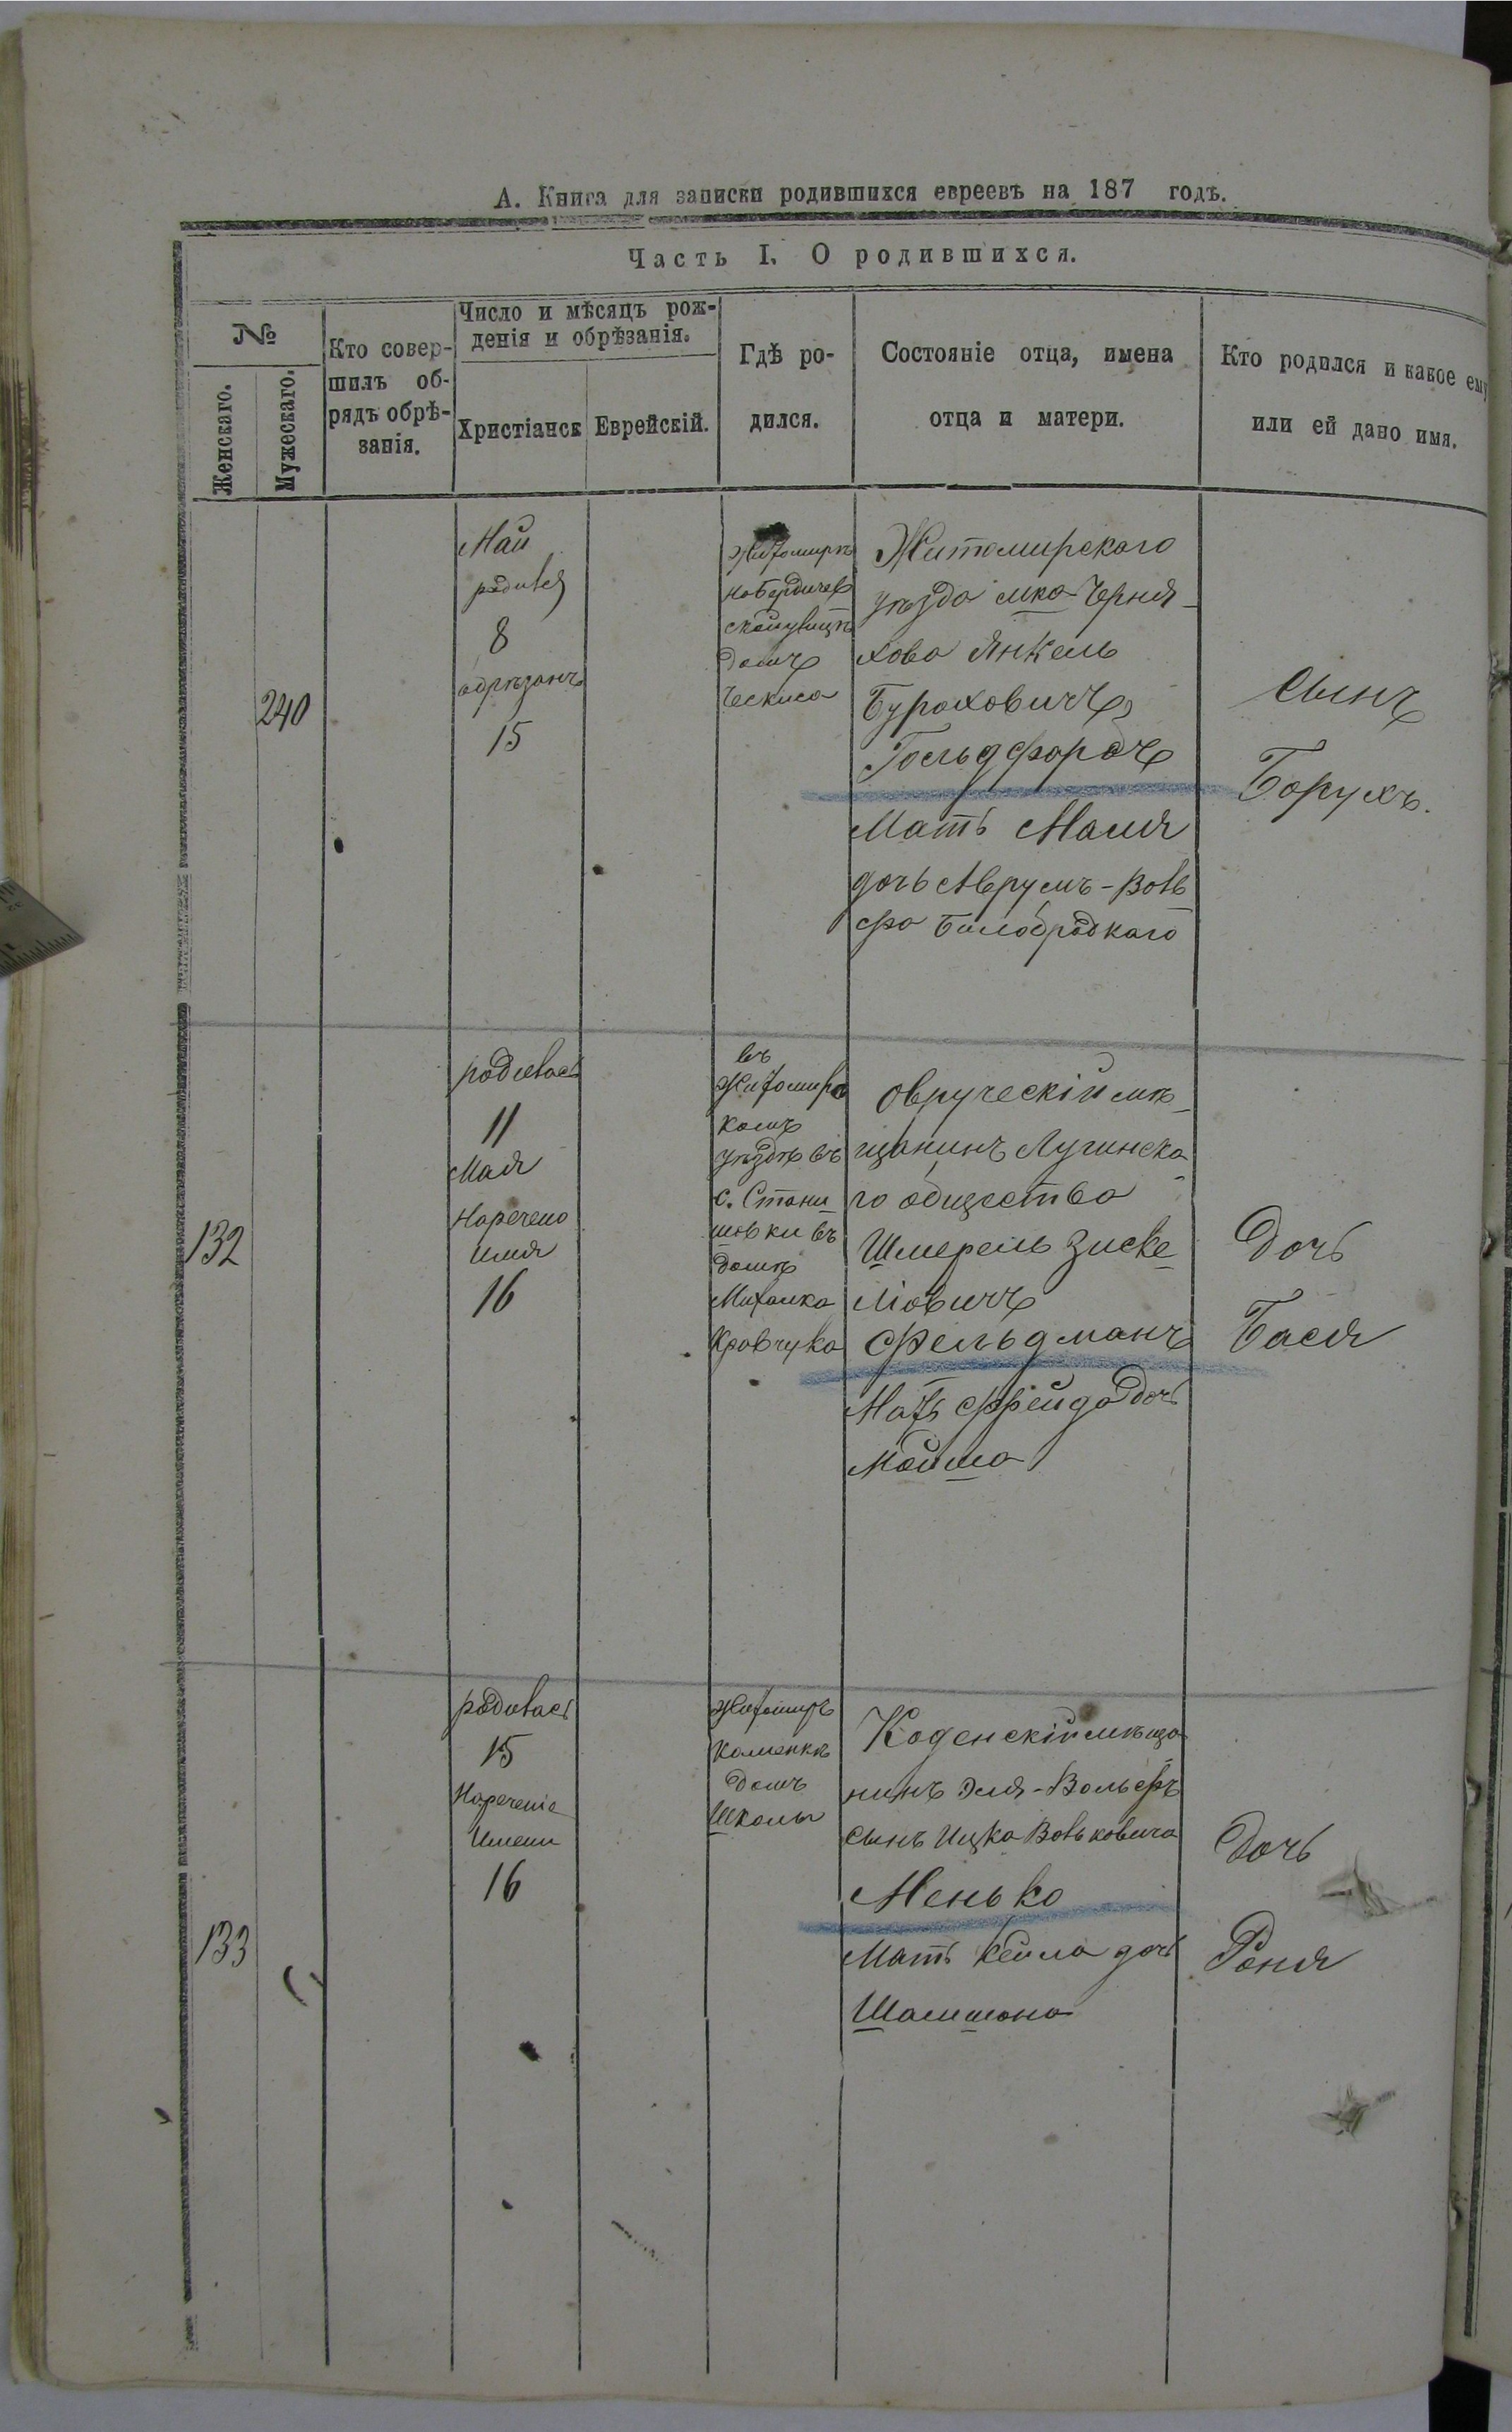 А. Книга для записки родившихся евреевъ на 187 годъ.
Часть I. О родившихся.
№
Женскаго.
Мужескаго.
Кто совер-
шилъ об-
рядъ обрѣ-
занія.
Число и мѣсяцъ рож-
денія и обрѣзанія.
Христіанск
Еврейскій.
Гдѣ ро-
дился.
Состояніе отца, имена
отца и матери.
Кто родился и какое ему
или ей дано имя.
240
Май
родився
8
обрѣзанъ
15
Житомирѣ
на Бердичев
ской улицѣ
домъ
Ческиса
Житомирскаго
уѣзда мка Черня-
хова Янкель
Бураховичъ
Гольдфарбъ
Мать Маля
дочь Аврумъ-Воль
фа Билобродкаго
Сынъ
Борухъ.
132
родилась
11
Мая
Наречено
Имя
16
въ
Житомирс
комъ
уѣздѣ въ
с. Стани
шовки въ
домѣ
Михалка
Кравчука
Овруческій мѣ-
щанинъ Лугинска-
го общества
Шмерель Зиске-
ліовичъ
Фельдманъ
Мать Фрейда дочь
Мойша
Дочь
Бася
133
родилась
15
Нареченіе
Имени
16
Житомиръ
Каменкѣ
домъ
Школы
Коденскій мѣща
нинъ Эля-Вольфъ
сынъ Ицка Вольковича
Менько
Мать Кейла дочь
Шамшона
Дочь
Роня